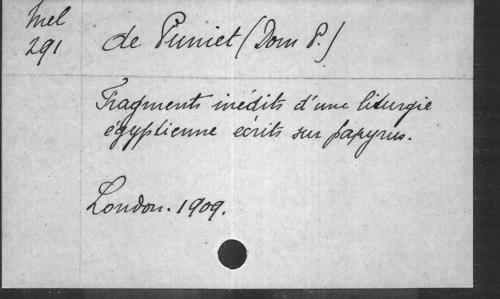 Mel
291
de Puniet (Dom P.)
Fragments inédits d'une liturgie
égyptienne écrits sur papyrus.
London. 1909.